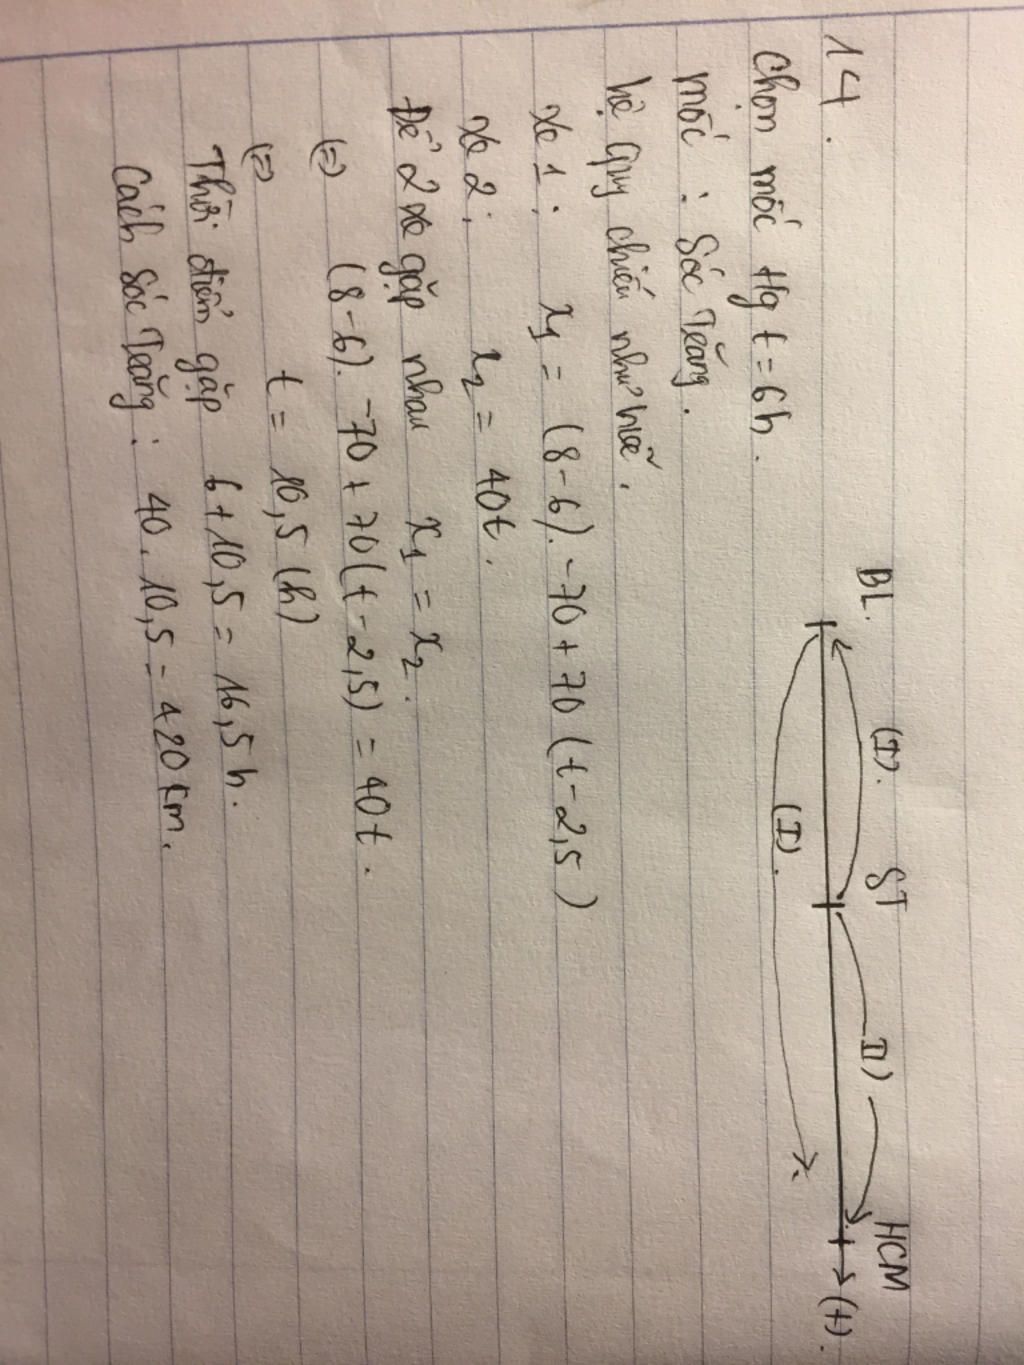 14.
BL. (I). ST II) HCM (+).
(I).
Chọn mốc tg t = 6h.
mốc : Sóc Trăng.
hệ quy chiếu như hình.
xe 1. x₁ = (8-6).-70+70(t-2,5)
xe 2. x₂ = 40t.
Để 2 xe gặp nhau x₁ = x₂.
(=) (8-6).-70+70(t-2,5) = 40t.
(=) t = 10,5 (h)
Thời điểm gặp 6+10,5 = 16,5 h.
Cách Sóc Trăng : 40.10,5 = 420 km.